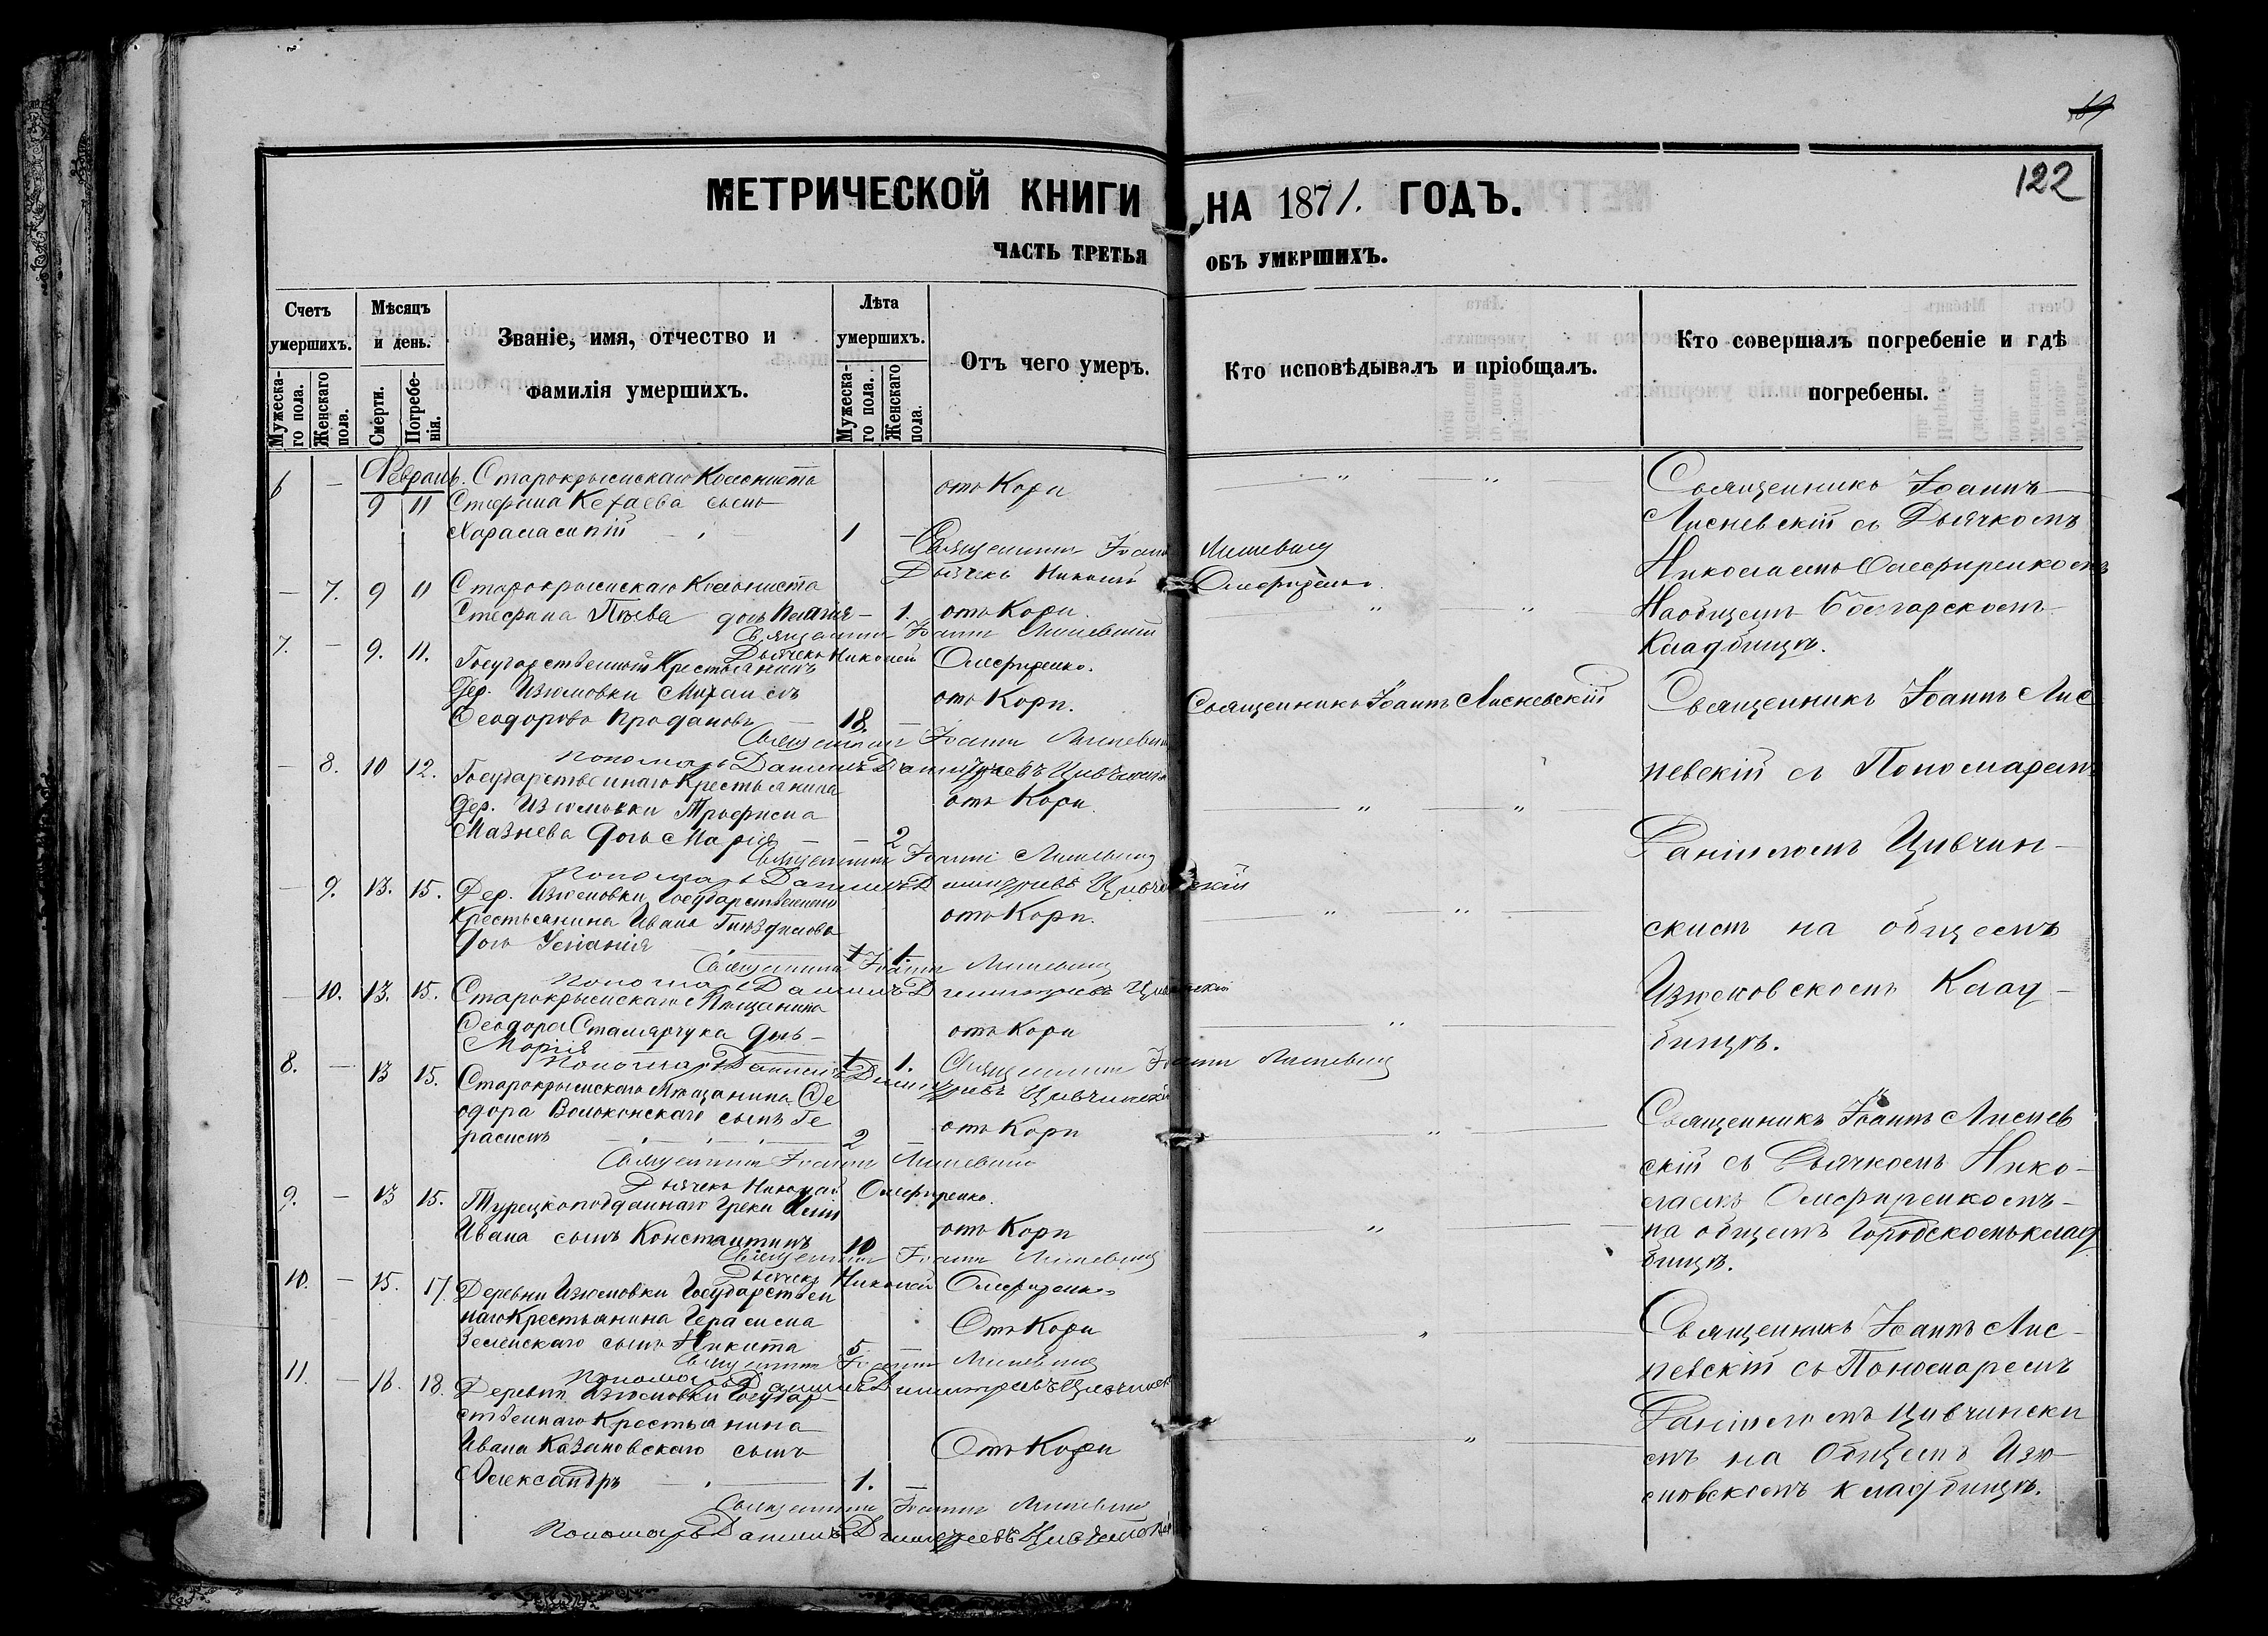 122
МЕТРИЧЕСКОЙ КНИГИ НА 1871. ГОДЪ.
ЧАСТЬ ТРЕТЬЯ ОБЪ УМЕРШИХЪ.
Счетъ умершихъ.
Мужеска-го пола.
Женскаго пола.
Мѣсяцъ и день.
Смерти.
Погребе-нія.
Званіе, имя, отчество и фамилія умершихъ.
Лѣта умершихъ.
Мужеска-го пола.
Женскаго пола.
Отъ чего умеръ.
Кто исповѣдывалъ и пріобщалъ.
Кто совершалъ погребеніе и гдѣ погребены.
6 — Февраль. Старокрымскаго Колониста отъ Кори — " — " —
9 11 Стефана Кефаева сынъ
Харалампій — 1 —
Священникъ Іоаннъ Лисневскій
Дьячекъ Николай Олефиренко.
— 7. 9 11 Старокрымскаго Колониста
Стефана дочь — 1. отъ Кори. " "
Священникъ Іоаннъ Лисневскій
Дьячекъ Николай Олефиренко.
7. — 9. 11. Государственный Крестьянинъ
Дер. Изюмовки Михаилъ отъ Кори. Священникъ Іоаннъ Лисневскій
Феодоровъ Продановъ — 18. —
Священникъ Іоаннъ Лисневскій
Пономарь Даніилъ Димитріевъ Цивчинскій
— 8. 10 12. Государственнаго Крестьянина
Дер. Изюмовки Трофима отъ Кори. — " — " —
Мазнева дочь Марія — — 2
Священникъ Іоаннъ Лисневскій
Пономарь Даніилъ Димитріевъ Цивчинскій
— 9. 13. 15. Дер. Изюмовки Государственнаго
Крестьянина Ивана Гнездилова отъ Кори. " "
дочь — 1.
Священникъ Іоаннъ Лисневскій
Пономарь Даніилъ Димитріевъ Цивчинскій
— 10. 13. 15. Старокрымскаго Мѣщанина
Феодора дочь — отъ Кори — " —
Марія 1.
Священникъ Іоаннъ Лисневскій
Пономарь Даніилъ Димитріевъ Цивчинскій
8. — 13 15. Старокрымскаго Мѣщанина Фе
одора Волконскаго сынъ Ге отъ Кори — " —
расимъ — 2 —
Священникъ Іоаннъ Лисневскій
Дьячекъ Николай Олефиренко.
9. — 13 15. Турецкоподданнаго Грека
Ивана сынъ Константинъ 10 отъ Кори — " —
Священникъ Іоаннъ Лисневскій
Дьячекъ Николай Олефиренко
10. — 15. 17. Деревни Изюмовки Государствен
наго Крестьянина Герасима Отъ Кори "
сынъ Никита 5 —
Священникъ Іоаннъ Лисневскій
Пономарь Даніилъ Димитріевъ Цивчинскій
11. — 16. 18. Деревни Изюмовки Государ-
ственнаго Крестьянина
Ивана Казановскаго сынъ Отъ Кори — " —
Александръ — 1. —
Священникъ Іоаннъ Лисневскій
Пономарь Даніилъ Димитріевъ Цивчинскій
Священникъ Іоаннъ
Лисневскій съ Дьячкомъ
Николаемъ Олефиренкомъ
На общемъ Болгарскомъ
Кладбищѣ.
Священникъ Іоаннъ Лис
невскій съ Пономаремъ
Даніиломъ Цивчин-
скимъ на общемъ
Изюмовскомъ Клад-
бищѣ.
Священникъ Іоаннъ Лиснев
скій съ Дьячкомъ Нико-
лаемъ Олефиренкомъ-
на общемъ Городскомъ клад
бищѣ.
Священникъ Іоаннъ Лис-
невскій съ Пономаремъ
Даніиломъ Цивчински
мъ на Общемъ Изю-
мовскомъ кладбищѣ.